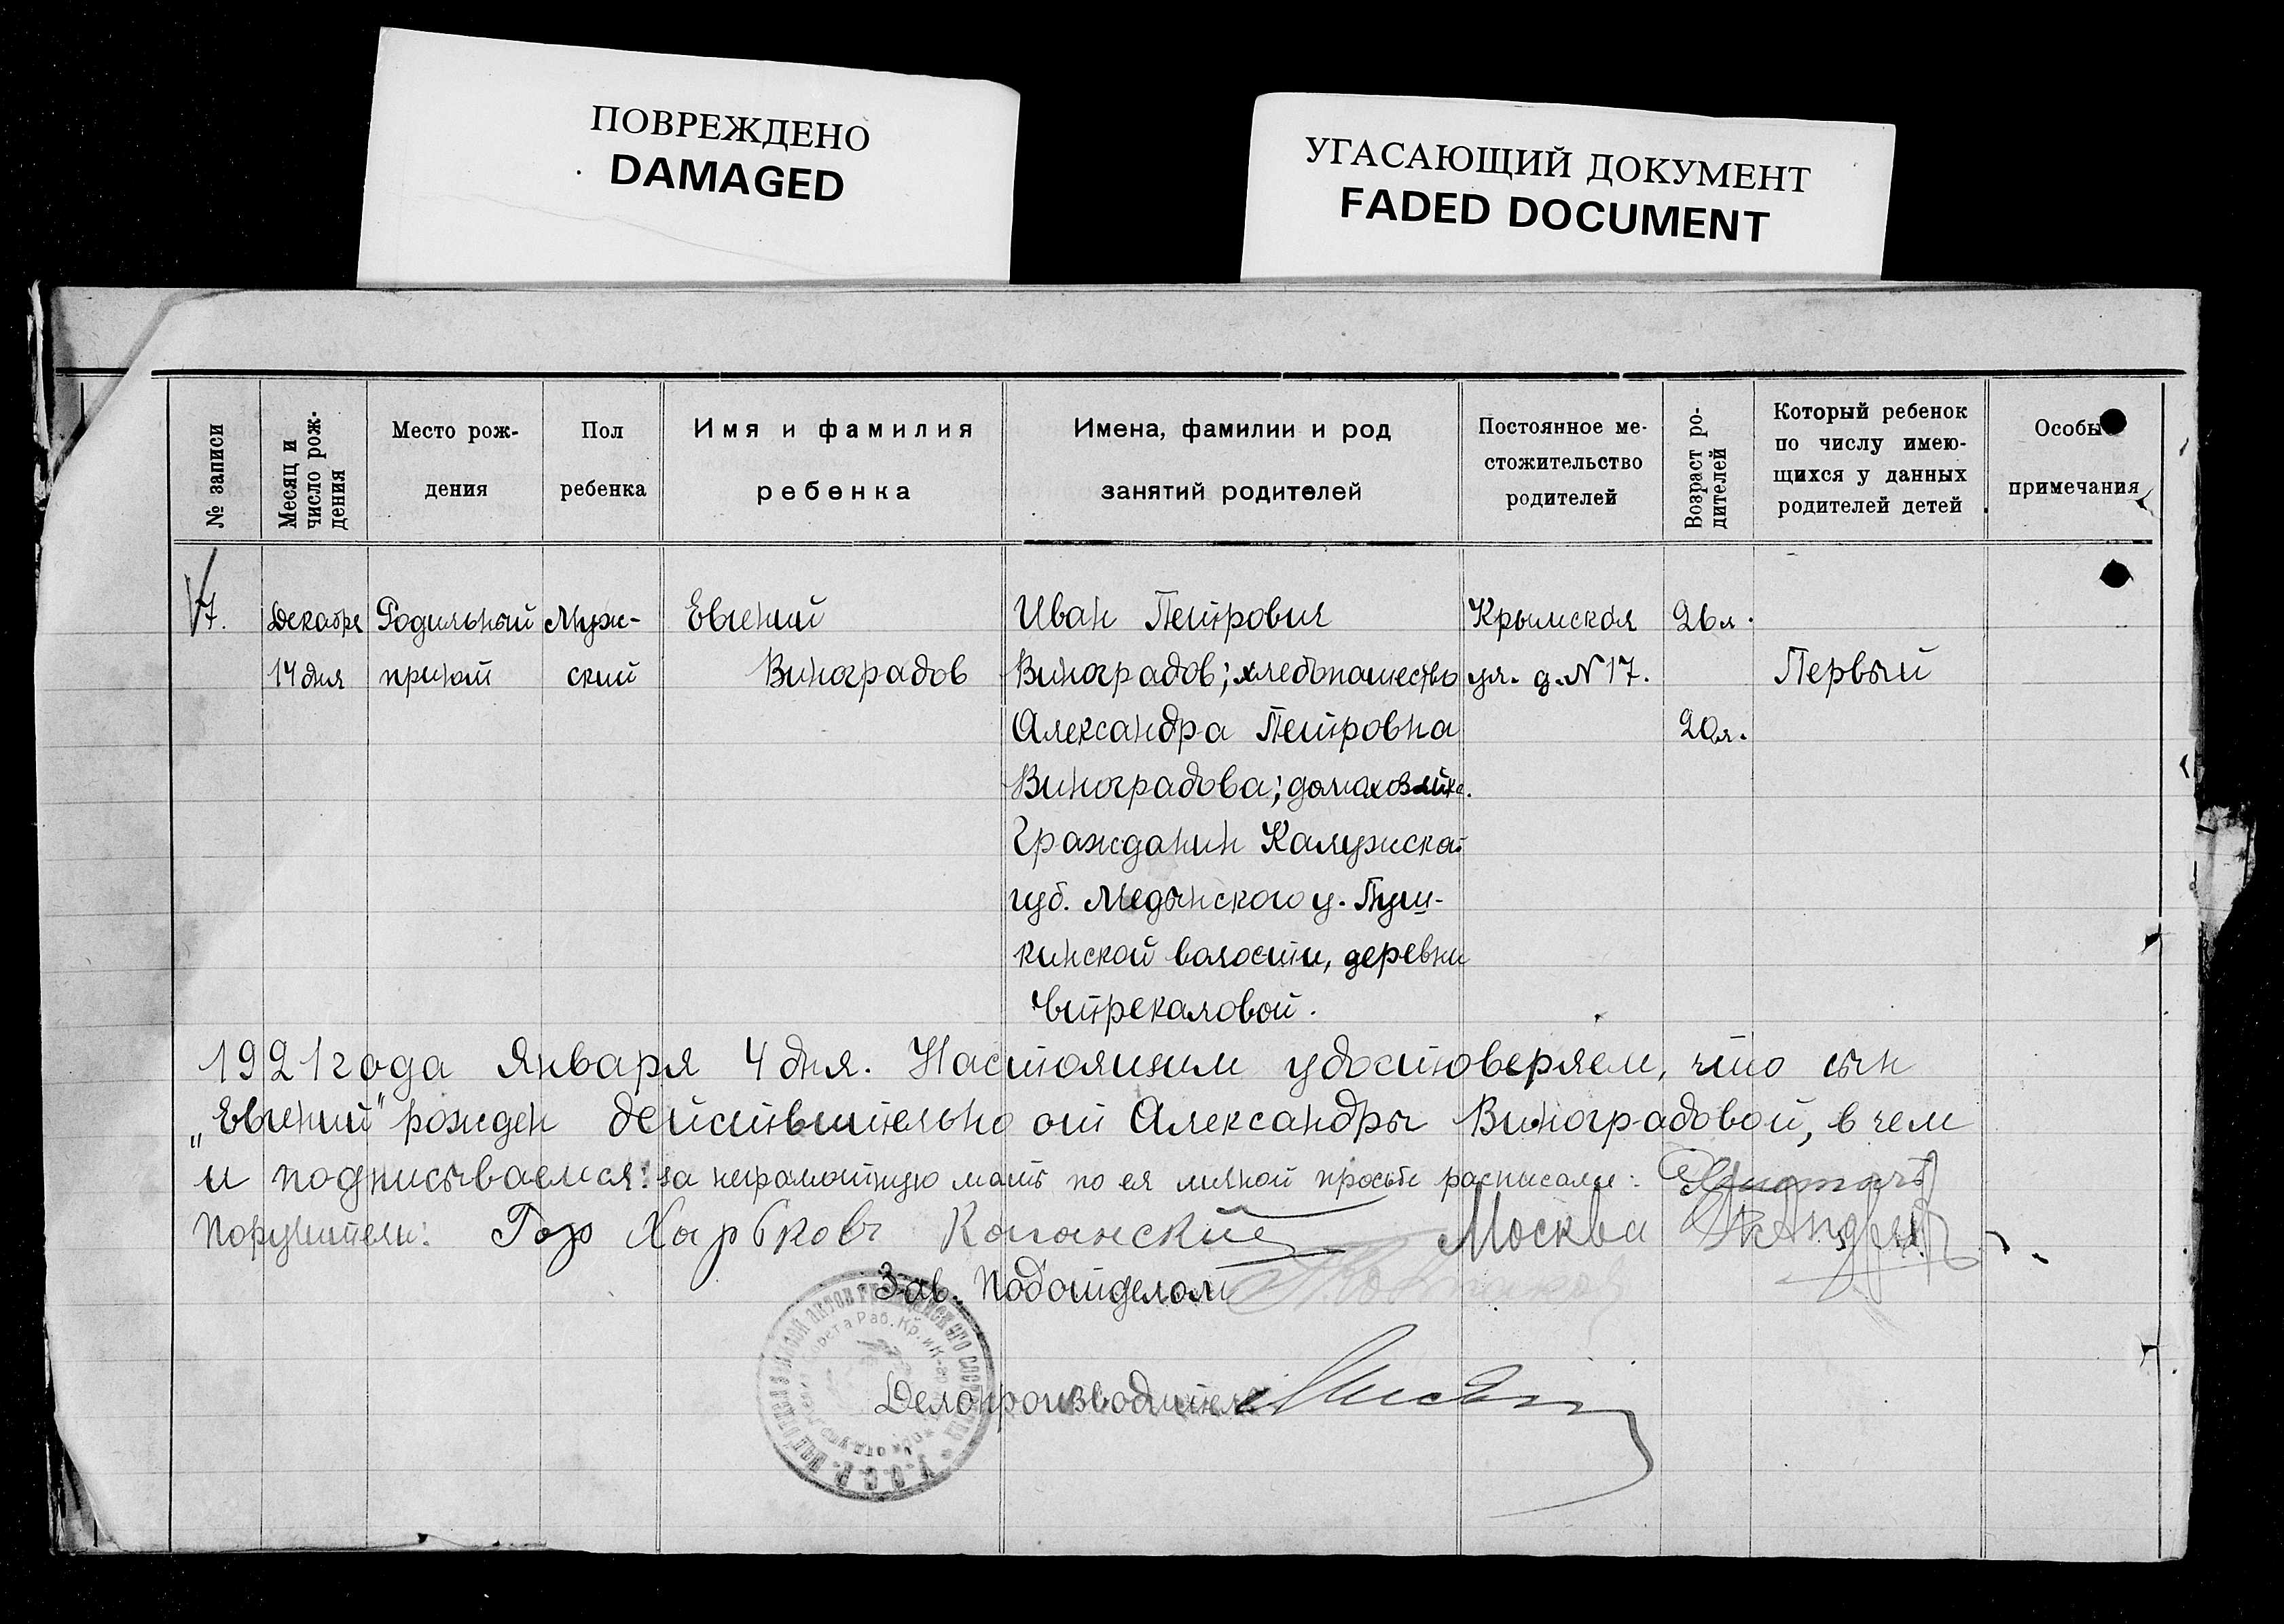 ПОВРЕЖДЕНО
DAMAGED
УГАСАЮЩИЙ ДОКУМЕНТ
FADED DOCUMENT
№ записи
Месяц и число рождения
Место рож-
дения
Пол
ребенка
Имя и фамилия
ребенка
Имена, фамилии и род
занятий родителей
Постоянное ме-
стожительство
родителей
Возраст ро-
дителей
Который ребенок
по числу имею-
щихся у данных
родителей детей
Особы
примечания
7. Декабря Родильный Муж- Евгений Иван Петрович Крымская 26 л.
14 дня приют ский Виноградов Виноградов; хлебопашество ул. д. N 17. Первый
Александра Петровна 20 л.
Виноградова; домохозяйка.
Гражданин Калужской
губ. Медынского у. Пуш-
кинской волости, деревни
1921 года Января 4 дня. Настоящим удостоверяем, что сын
„Евгений" рожден действительно от Александры Виноградовой, в чем
и подписываемся: за неграмотную мать по ея личной просьбе расписался:
Поручители: Гор Харьков Москва
Зав. Подотделом
Делопроизводитель
У.С.С.Р.